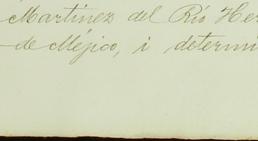 Martinez del Río Her
de Méjico, i determi